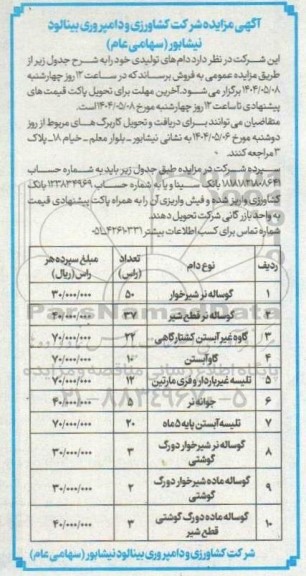 آگهی مزایده شرکت کشاورزی و دامپروری بینالود
نیشابور (سهامی عام)
این شرکت در نظر دارد دام های تولیدی خود را به شرح جدول زیر از
طریق مزایده عمومی به فروش برساند که در ساعت ۱۲ روز چهارشنبه
۱۴۰۴/۰۵/۰۸ برگزار می شود. آخرین مهلت برای تحویل پاکت قیمت های
پیشنهادی تا ساعت ۱۲ روز چهارشنبه مورخ ۱۴۰۴/۰۵/۰۸ است.
متقاضیان می توانند برای دریافت و تحویل کاربرگ های مربوط از روز
دوشنبه مورخ ۱۴۰۴/۰۵/۰۶ به نشانی نیشابور - بلوار معلم - خیام ۱۸ـ پلاک
۳ مراجعه کنند.
سپرده شرکت در مزایده طبق جدول زیر باید به شماره حساب
بانک سینا و یا به شماره حساب ۱۲۳۸۳۴۹۶۹ بانک
کشاورزی واریز شده و فیش واریزی آن را به همراه پاکت پیشنهادی قیمت
به واحد بازرگانی شرکت تحویل دهند.
شماره تماس برای کسب اطلاعات بیشتر: ۴۲۶۱۰۳۳۱-۰۵۱
ردیف نوع دام تعداد (راس) مبلغ سپرده هر راس (ریال)
۱ گوساله نر شیرخوار ۵۰ ۳۰/۰۰۰/۰۰۰
۲ گوساله نر قطع شیر ۳۷ ۴۰/۰۰۰/۰۰۰
۳ گاوه غیر آبستن کشتارگاهی ۲۲ ۷۰/۰۰۰/۰۰۰
۴ گاو آبستن ۱۰ ۷۰/۰۰۰/۰۰۰
۵ تلیسه غیرباردار و فری مارتین ۱۲ ۷۰/۰۰۰/۰۰۰
۶ جوانه نر ۵ ۴۰/۰۰۰/۰۰۰
۷ تلیسه آبستن پایه ۵ ماه ۲۰ ۷۰/۰۰۰/۰۰۰
۸ گوساله نر شیرخوار دورگ گوشتی ۳ ۳۰/۰۰۰/۰۰۰
۹ گوساله ماده شیرخوار دورگ گوشتی ۲ ۳۰/۰۰۰/۰۰۰
۱۰ گوساله ماده دورگ گوشتی قطع شیر ۳ ۴۰/۰۰۰/۰۰۰
شرکت کشاورزی و دامپروری بینالود نیشابور (سهامی عام)